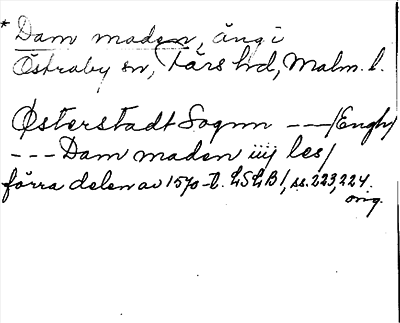 * Dam maden, äng i
Östraby sn, Färs hd, Malm. l.
Østerstadt Sognn ---/Engh/
--- Dam maden iiij les/
förra delen av 1570-t. LSLB 1, ss. 223, 224.
orig.